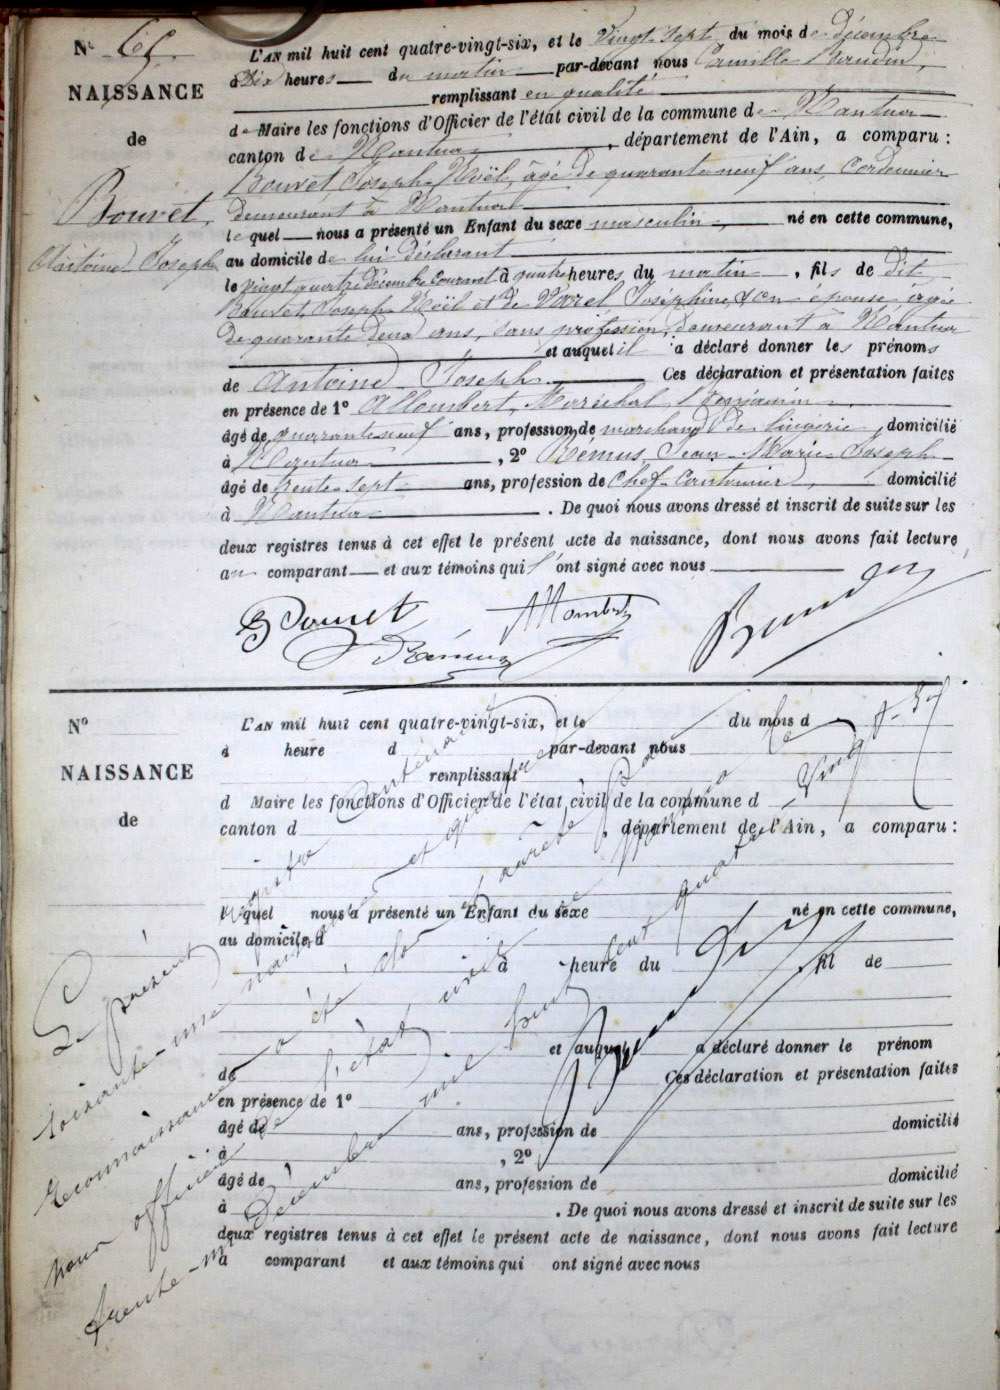 N° 65
NAISSANCE
de
Bouvet,
Antoine Joseph
L'AN mil huit cent quatre-vingt-six, et le Vingt-Sept du mois de décembre
à Dix heures du matin par-devant nous Camille Baudin,
remplissant en qualité
de Maire les fonctions d'Officier de l'état civil de la commune de Nantua
canton de Nantua, département de l'Ain, a comparu :
Bouvet Joseph Noël, âgé de quarante neuf ans, Cordonnier
demeurant à Nantua
lequel nous a présenté un Enfant du sexe masculin, né en cette commune,
au domicile de lui déclarant
le vingt quatre décembre Courant à quatre heures du matin, fils de dit
Bouvet Joseph Noël et de Joséphine, son épouse âgée
de quarante deux ans, sans profession, demeurant à Nantua
et auquel il a déclaré donner les prénoms
de Antoine Joseph. Ces déclaration et présentation faites
en présence de 1° Allombert, Maréchal Benjamin
âgé de quarante neuf ans, profession de marchand de lingerie, domicilié
à Nantua, 2° Rémus, Jean Marie Joseph
âgé de trente-sept ans, profession de Chef-Cantonnier, domicilié
à Nantua. De quoi nous avons dressé et inscrit de suite sur les
deux registres tenus à cet effet le présent acte de naissance, dont nous avons fait lecture
au comparant et aux témoins qui l'ont signé avec nous
Bouvet Allombert Baudin
Rémus
N°
NAISSANCE
de
L'AN mil huit cent quatre-vingt-six, et le du mois d
à heure d par-devant nous
remplissant
d Maire les fonctions d'Officier de l'état civil de la commune d
canton d , département de l'Ain, a comparu :
lequel nous a présenté un Enfant du sexe né en cette commune,
au domicile d
à heure du , fil de
et auquel a déclaré donner le prénom
de Ces déclaration et présentation faites
en présence de 1°
âgé de ans, profession de domicilié
à , 2°
âgé de ans, profession de domicilié
à . De quoi nous avons dressé et inscrit de suite sur les
deux registres tenus à cet effet le présent acte de naissance, dont nous avons fait lecture
à comparant et aux témoins qui ont signé avec nous
Le présent registre contenant
soixante-une naissances et quatre
reconnaissances a été clos et arrêté par
nous officier de l'état civil le
trente-un Décembre mil huit cent quatre vingt-six
Baudin